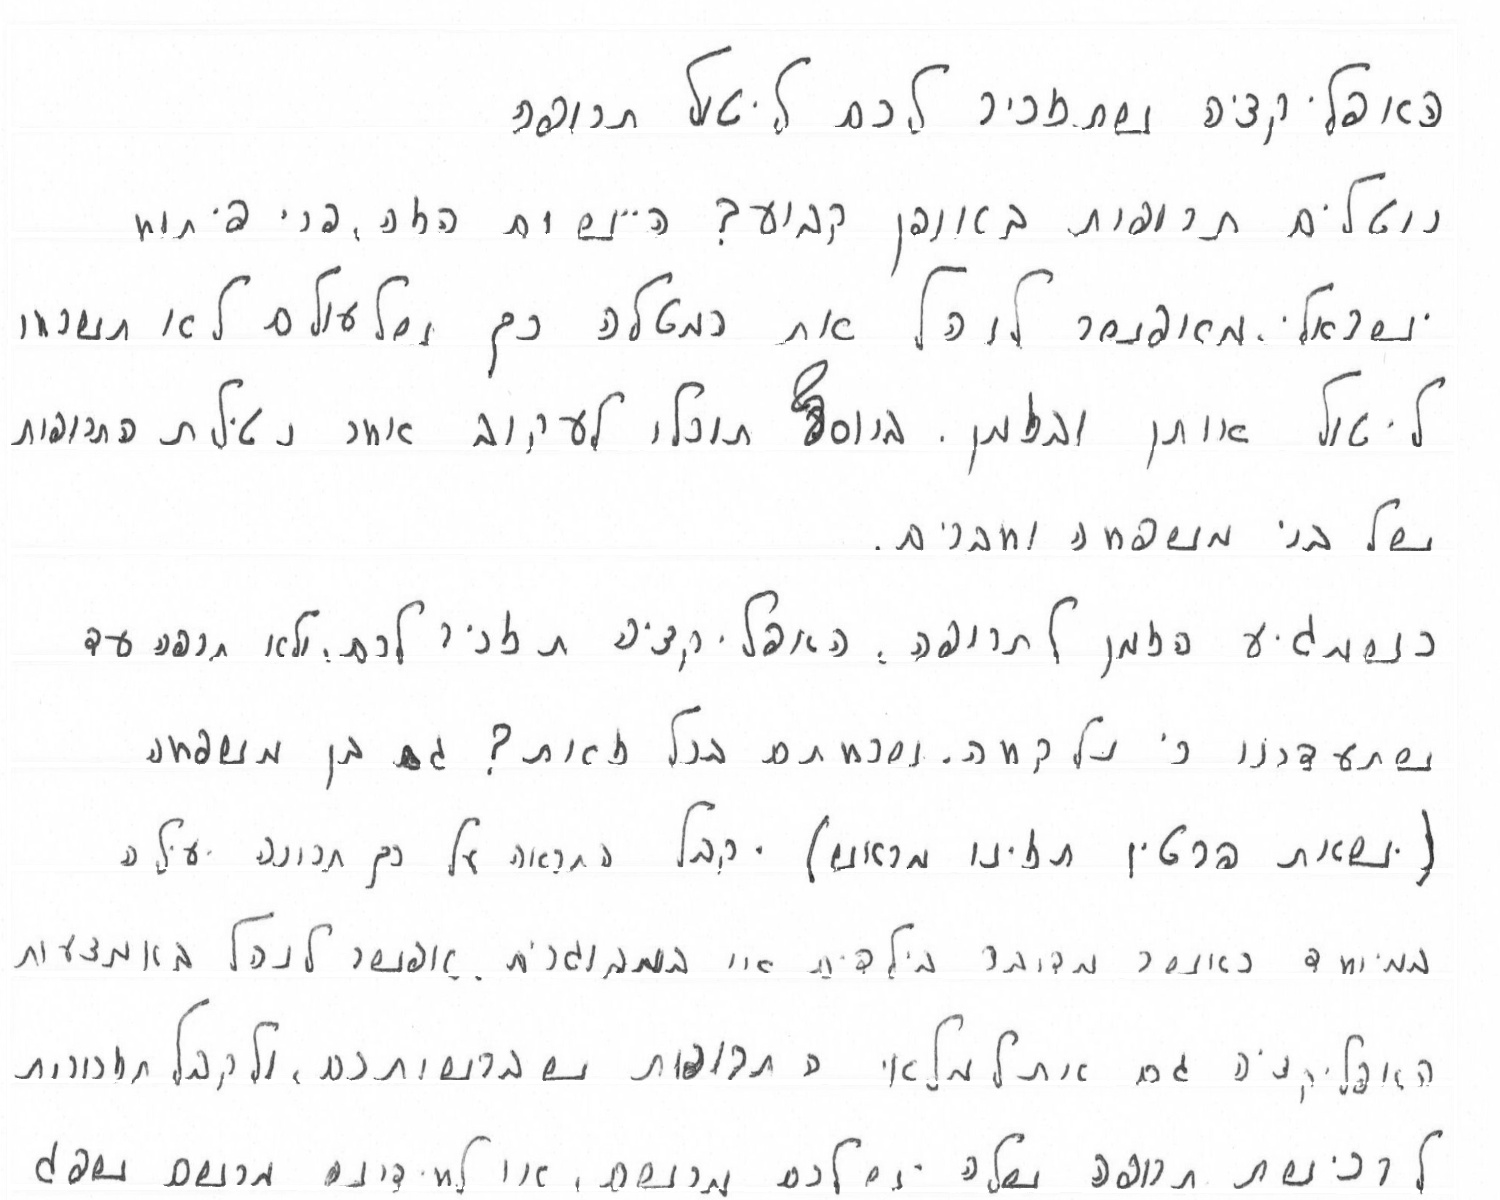 האפליקציה שתזכיר לכם ליטול תרופה
נוטלים תרופות באופן קבוע? היישום הזה, פרי פיתוח
ישראלי, מאפשר לנהל את המטלה כך שלעולם לא תשכחו
ליטול אותן ובזמן. בנוסף תוכלו לעקוב אחר נטילת התרופות
של בני משפחה וחברים.
כשמגיע הזמן לתרופה, האפליקציה תזכיר לכם, ולא תרפה עד
שתעדכנו כי נלקחה. שכחתם בכל זאת? גם בן משפחה
(ישאת פרטיו תזינו מראש) יקבל התראה על כך תכונה יעילה
במיוחד כאשר מדובר בילדים או במבוגרים. אפשר לנהל באמצעות
האפליקציה גם את מלאי התרופות שברשותכם, ולקבל תזכורות
לרכישת תרופה שלה יש לכם מרשם, או לחידוש מרשם שפג